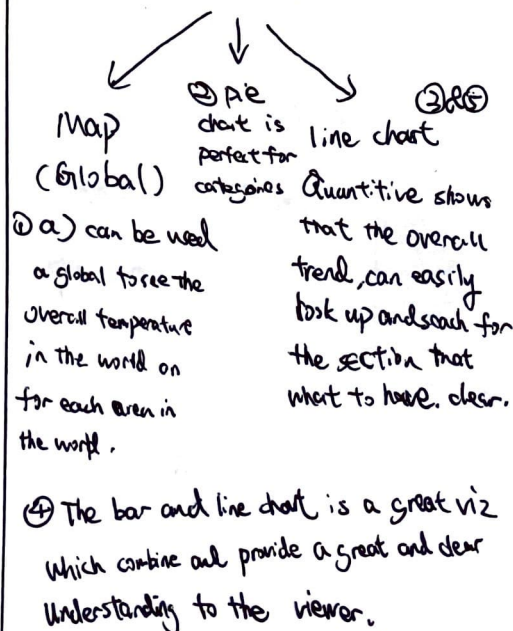 Map
(Global)
① a) can be used
a global to see the
overall temperature
in the world on
for each area in
the world.
② pie
chart is
perfect for
categories
③&⑤
line chart
Quantitive shows
that the overall
trend, can easily
look up and seach for
the section that
what to have. clear.
④ The bar and line chart is a great viz
which combine and provide a great and clear
understanding to the viewer.